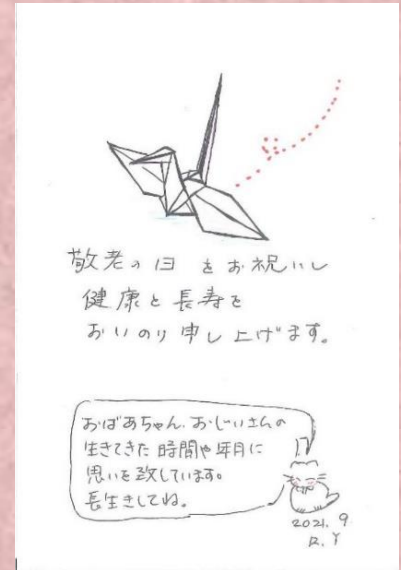 敬老の日 をお祝いし
健康と長寿を
おいのり申し上げます。
おばあちゃん、おじいさんの
生きてきた 時間や年月に
思いを致しています。
長生きしてね。
2021. 9
R. Y